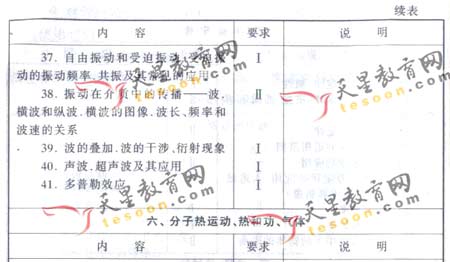 续表
内 容 要求 说 明
37. 自由振动和受迫振动、受迫振 Ⅰ
动的振动频率、共振及其常见的应用
38. 振动在介质中的传播——波. Ⅱ
横波和纵波. 横波的图像. 波长、频率和
波速的关系
39. 波的叠加. 波的干涉、衍射现象 Ⅰ
40. 声波. 超声波及其应用 Ⅰ
41. 多普勒效应 Ⅰ
六、分子热运动、热和功、气体
内 容 要求 说 明
天星教育网
tesoon.com
天星教育网
tesoon.com
天星教育网
tesoon.com
天星教育网
tesoon.com